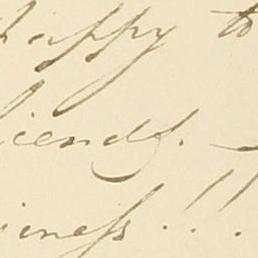 happy to
iends. —
iness!!!